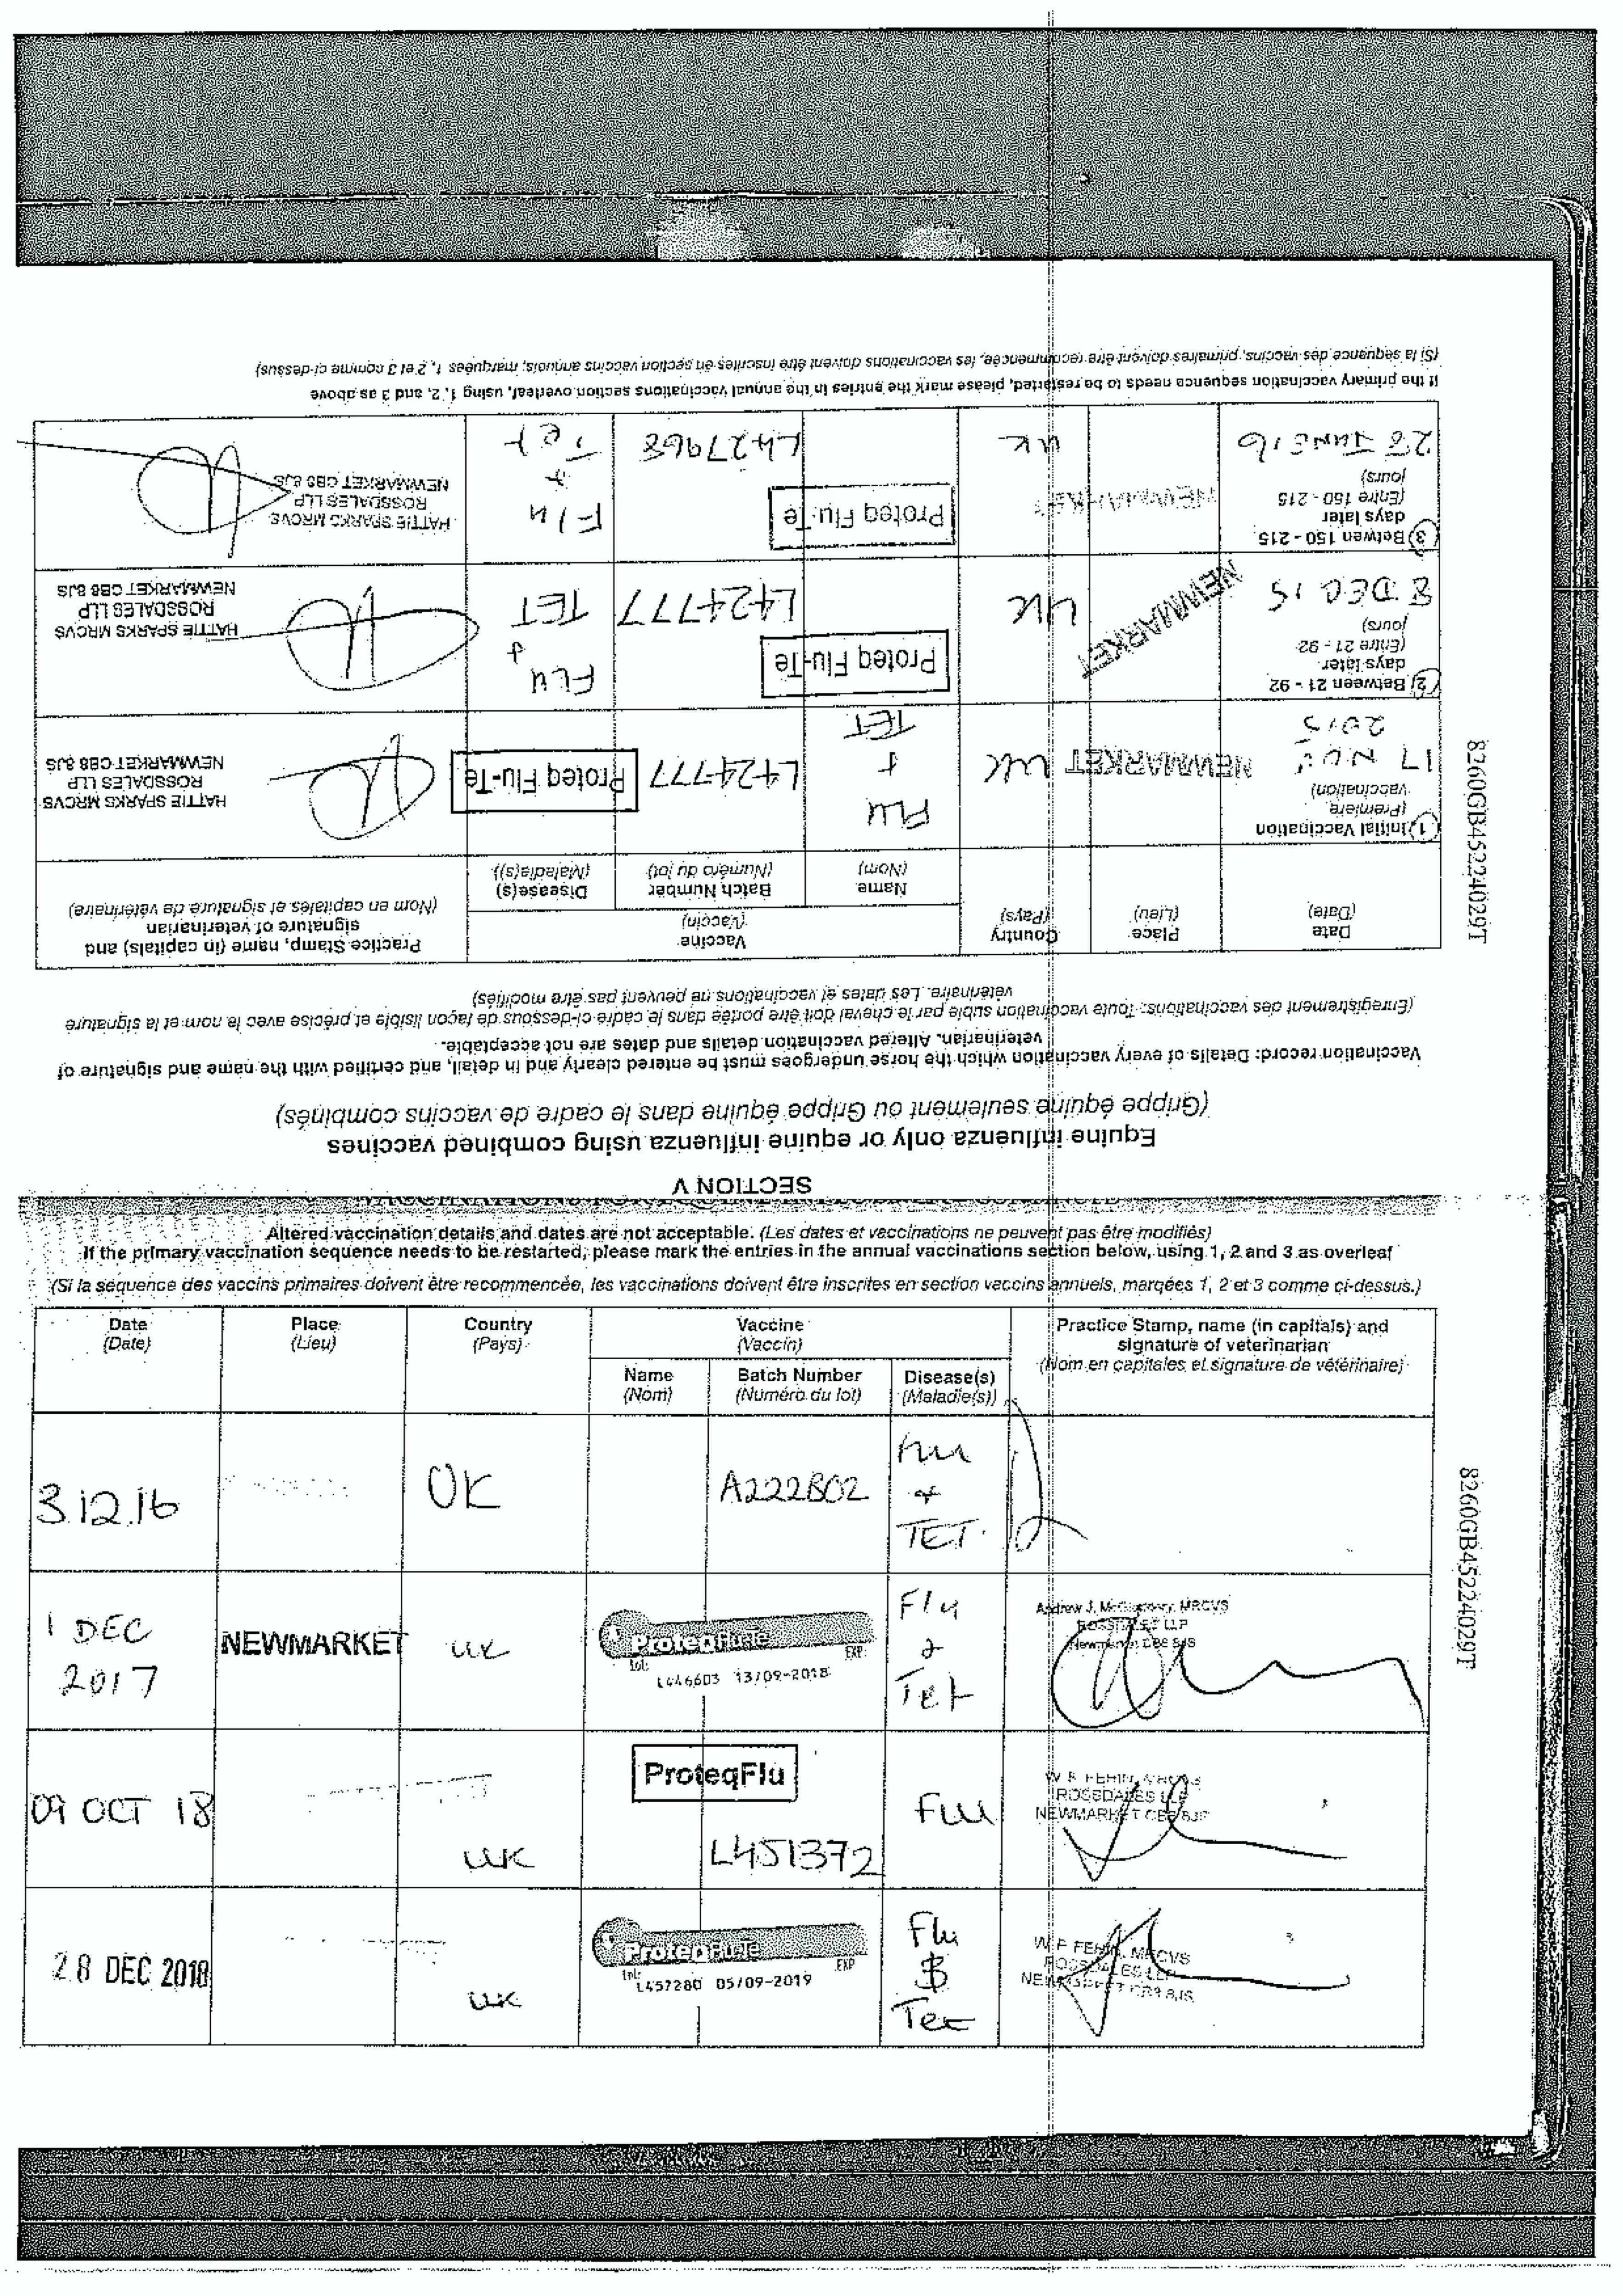 SECTION V
Equine influenza only or equine influenza using combined vaccines
(Grippe équine seulement ou Grippe équine dans le cadre de vaccins combinés)
Vaccination record: Details of every vaccination which the horse undergoes must be entered clearly and in detail, and certified with the name and signature of
veterinarian. Altered vaccination details and dates are not acceptable.
(Enregistrement des vaccinations: Toute vaccination subie par le cheval doit être portée dans le cadre ci-dessous de façon lisible et précise avec le nom et la signature
vétérinaire. Les dates et vaccinations ne peuvent pas être modifiés)
Date
(Date)
Place
(Lieu)
Country
(Pays)
Vaccine
(Vaccin)
Name
(Nom)
Batch Number
(Numéro du lot)
Disease(s)
(Maladie(s))
Practice Stamp, name (in capitals) and
signature of veterinarian
(Nom en capitales et signature de vétérinaire)
1) Initial Vaccination
(Première
vaccination)
17 NOV
2015
NEWMARKET
UK
FLU
+
TET
L424777
Proteq Flu-Te
HATTIE SPARKS MRCVS
ROSSDALES LLP
NEWMARKET CB8 8JS
2) Between 21 - 92
days later
(Entre 21 - 92
jours)
8 DEC 15
NEWMARKET
UK
Proteq Flu-Te
L424777
FLU
+
TET
HATTIE SPARKS MRCVS
ROSSDALES LLP
NEWMARKET CB8 8JS
3) Betwen 150 - 215
days later
(Entre 150 - 215
jours)
28 JUNE 16
NEWMARKET
UK
Proteq Flu-Te
L427968
Flu
+
Tet
HATTIE SPARKS MRCVS
ROSSDALES LLP
NEWMARKET CB8 8JS
If the primary vaccination sequence needs to be restarted, please mark the entries in the annual vaccinations section overleaf, using 1, 2, and 3 as above
(Si la séquence des vaccins, primaires doivent être recommencée, les vaccinations doivent être inscrites en section vaccins annuels, marquées 1, 2 et 3 comme ci-dessus)
8260GB45224029T
Altered vaccination details and dates are not acceptable. (Les dates et vaccinations ne peuvent pas être modifiés)
If the primary vaccination sequence needs to be restarted, please mark the entries in the annual vaccinations section below, using 1, 2 and 3 as overleaf
(Si la séquence des vaccins primaires doivent être recommencée, les vaccinations doivent être inscrites en section vaccins annuels, marqées 1, 2 et 3 comme ci-dessus.)
Date
(Date)
Place
(Lieu)
Country
(Pays)
Vaccine
(Vaccin)
Name
(Nom)
Batch Number
(Numéro du lot)
Disease(s)
(Maladie(s))
Practice Stamp, name (in capitals) and
signature of veterinarian
(Nom en capitales et signature de vétérinaire)
3.12.16
UK
A222B02
Flu
+
TET
1 DEC
2017
NEWMARKET
UK
ProteqFlu-Te
Lot: EXP:
L446603 13/09-2018
Flu
+
Tet
Andrew J. MRCVS
ROSSDALES LLP
Newmarket CB8 8JS
09 OCT 18
UK
ProteqFlu
L451372
Flu
ROSSDALES LLP
NEWMARKET CB8 8JS
28 DEC 2018
UK
ProteqFlu-Te
Lot: EXP
L457280 05/09-2019
Flu
&
Tet
MRCVS
ROSSDALES LLP
NEWMARKET CB8 8JS
8260GB45224029T